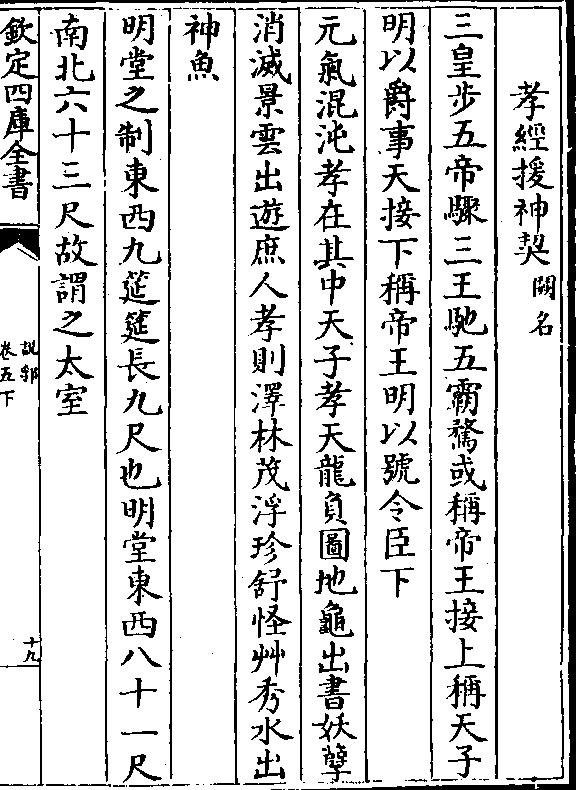 孝經援神契 闕名
三皇步五帝驟三王馳五霸騖或稱帝王接上稱天子
明以爵事天接下稱帝王明以號令臣下
元氣混沌孝在其中天子孝天龍負圖地龜出書妖孽
消滅景雲出遊庶人孝則澤林茂浮珍舒怪艸秀水出
神魚
明堂之制東西九筵筵長九尺也明堂東西八十一尺
南北六十三尺故謂之太室
欽定四庫全書
說郛
卷五下
十九